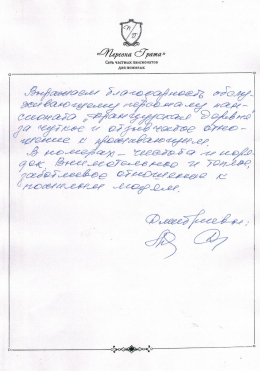 «Первая Грата»
Сеть частных пансионатов
для пожилых
Выражаем благодарность обслу-
живающему персоналу пан-
сионата „Французская Деревня"
за чуткое и отзывчатое отно-
шение к проживающим.
В номерах – чистота и поря-
док внимательное и тонкое,
заботливое отношение к
пожилым людям.
Дмитриевы: